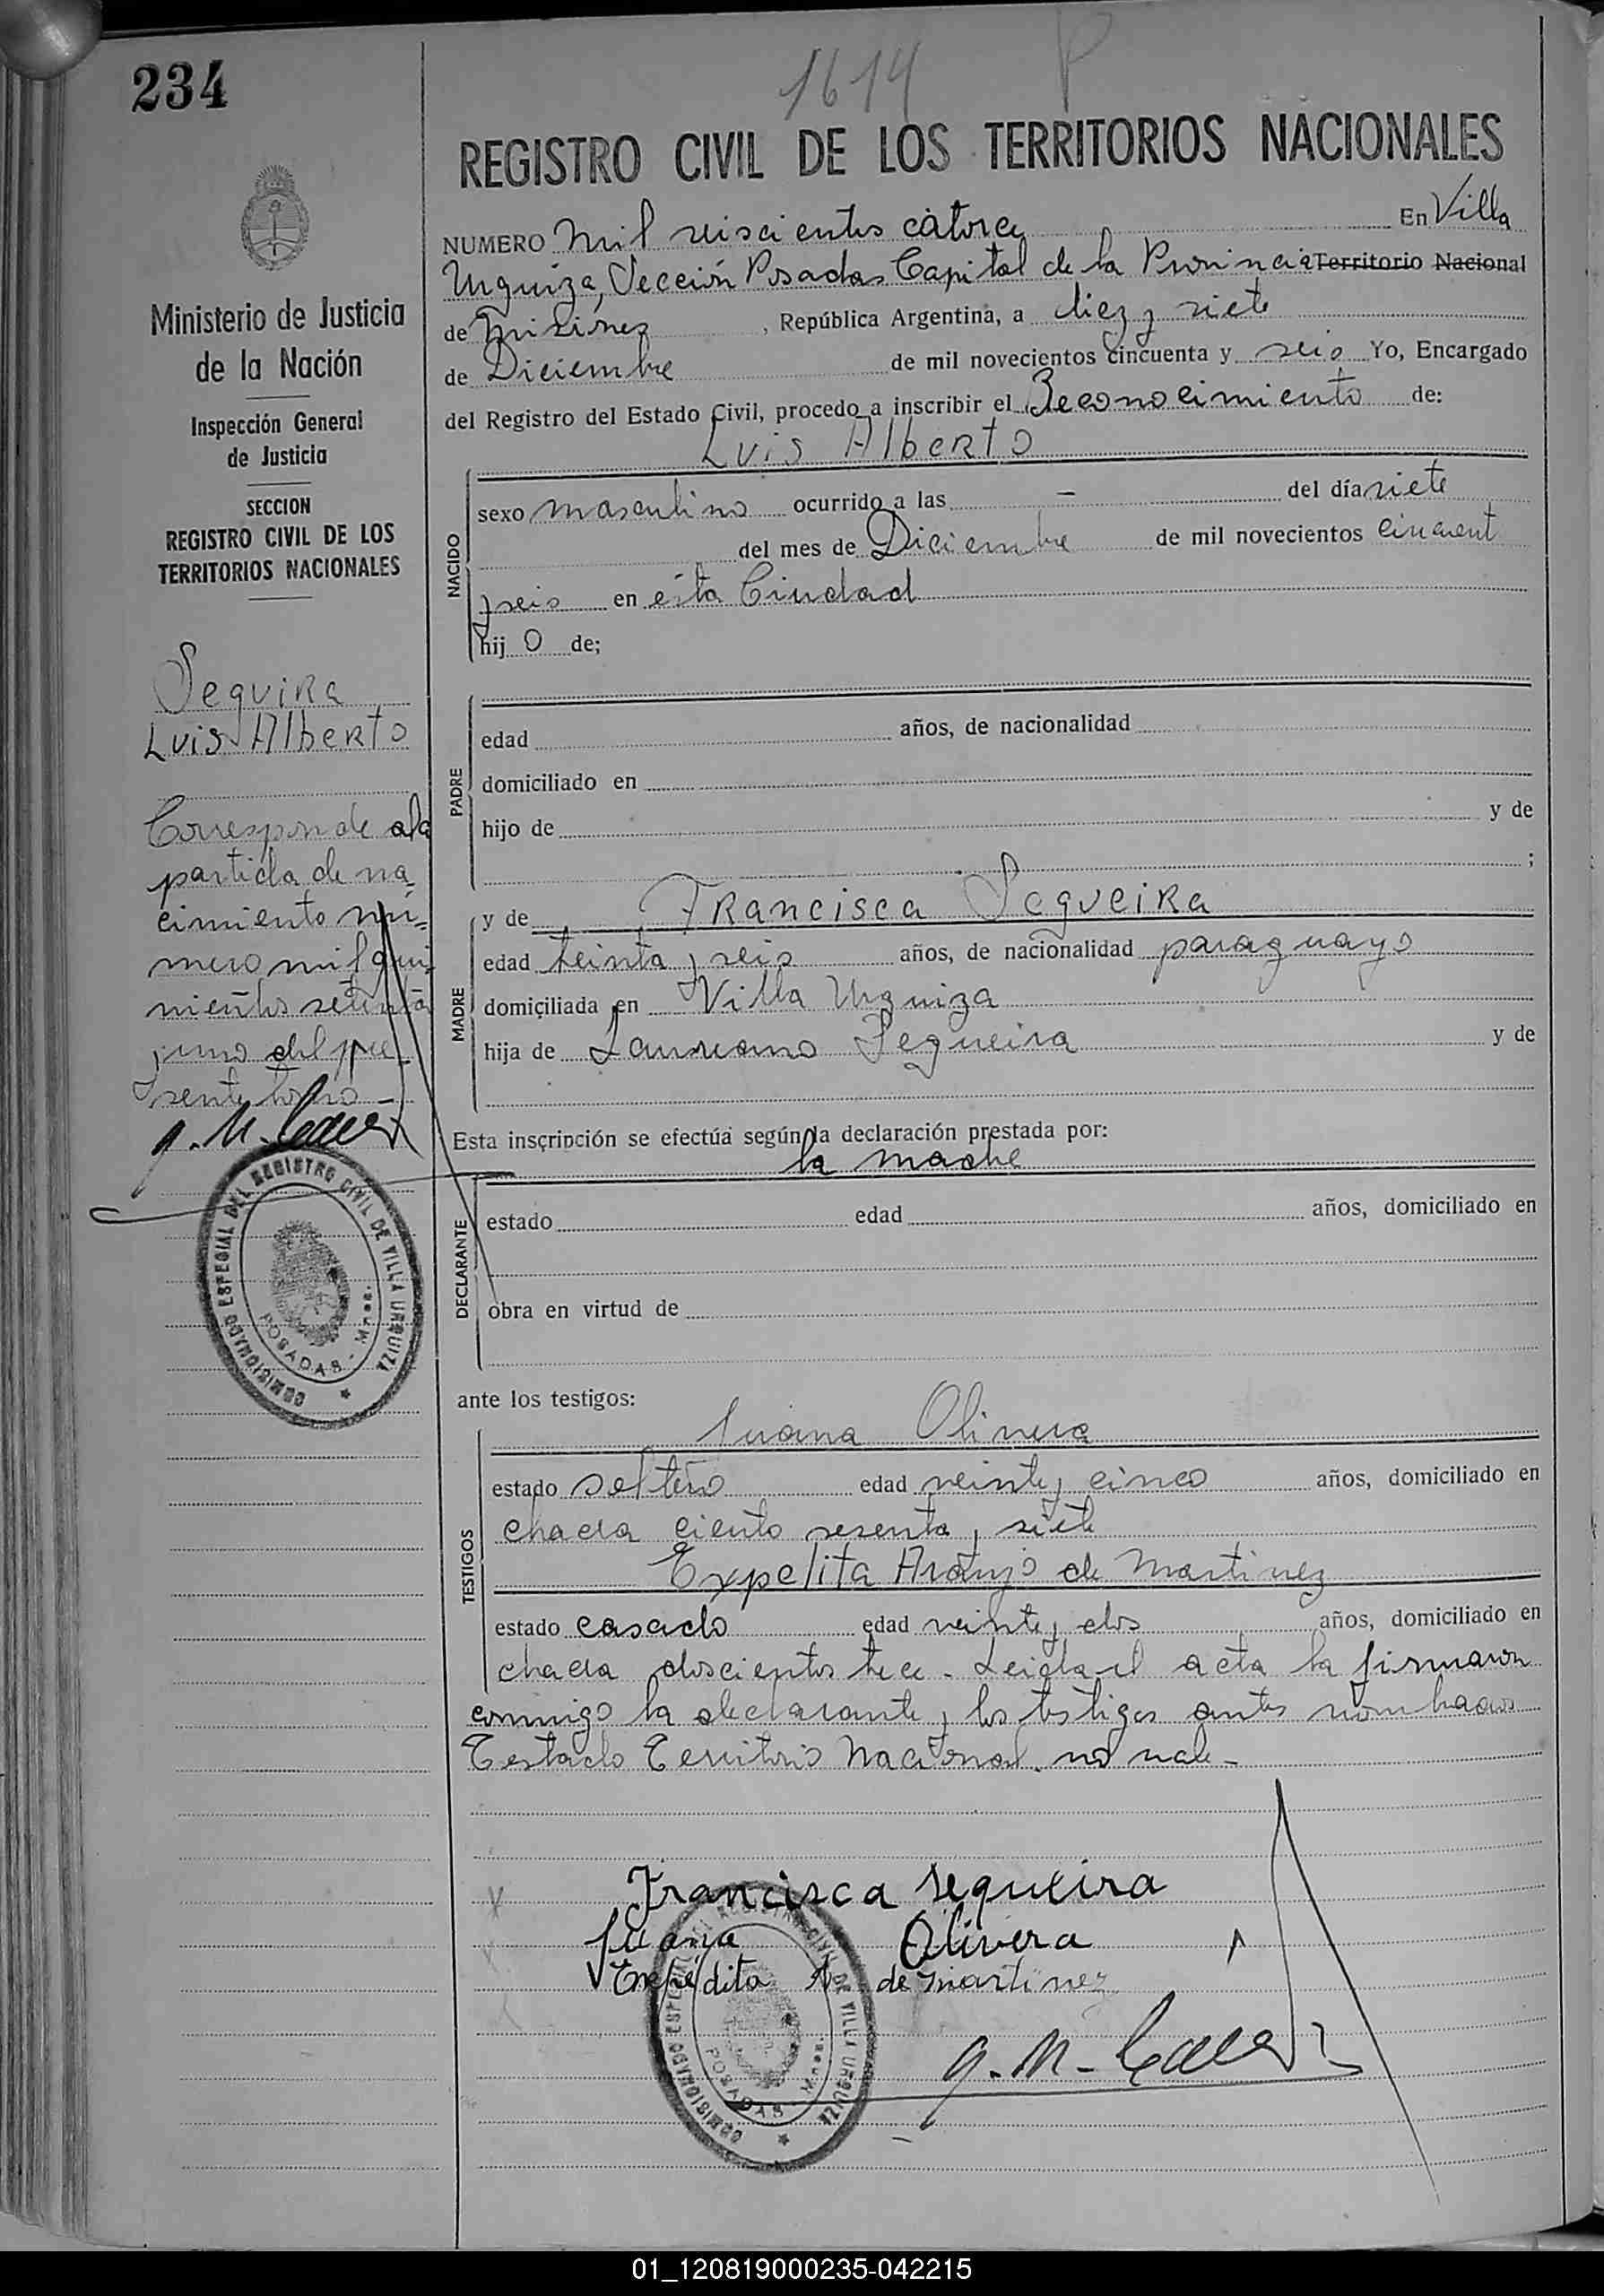 234
1614 P
REGISTRO CIVIL DE LOS TERRITORIOS NACIONALES
Ministerio de Justicia
de la Nación
Inspección General
de Justicia
SECCION
REGISTRO CIVIL DE LOS
TERRITORIOS NACIONALES
Sequira
Luis Alberto
Corresponde ala
partida de na-
cimiento nú=
mero mil qui-
nientos setenta
y uno del pre
sente
COMISIONADO ESPECIAL DEL REGISTRO CIVIL DE VILLA URQUIZA
POSADAS - Mnes.
NUMERO Mil seiscientos catorce En Villa
Urquiza, Sección Posadas Capital de la Provincia Territorio Nacional
de Misiones, República Argentina, a diez y siete
de Diciembre de mil novecientos cincuenta y seis Yo, Encargado
del Registro del Estado Civil, procedo a inscribir el Reconocimiento de:
Luis Alberto
NACIDO
sexo masculino ocurrido a las - del día siete
del mes de Diciembre de mil novecientos cincuent
y seis en ésta Ciudad
hij o de;
PADRE
edad años, de nacionalidad
domiciliado en
hijo de y de
;
MADRE
y de Francisca Seqveira
edad teinta y seis años, de nacionalidad paraguayo
domiciliada en Villa Urquiza
hija de Laureano Sequeira y de
Esta inscripción se efectúa según la declaración prestada por:
la madre
DECLARANTE
estado edad años, domiciliado en
obra en virtud de
ante los testigos:
TESTIGOS
Juana Olivera
estado soltero edad veinte y cinco años, domiciliado en
chacra ciento sesenta y siete
Expelita Araujo de Martinez
estado casado edad veinte y dos años, domiciliado en
chacra doscientos trece. Leida el acta la firmaron
conmigo la declarante y los testigos antes nombrados
Testado Territorio Nacional. no vale-
Francisca Sequeira
Juana Olivera
Expédita A de Martinez
COMISIONADO ESPECIAL DEL REGISTRO CIVIL DE VILLA URQUIZA
POSADAS Mnes.
01_120819000235-042215